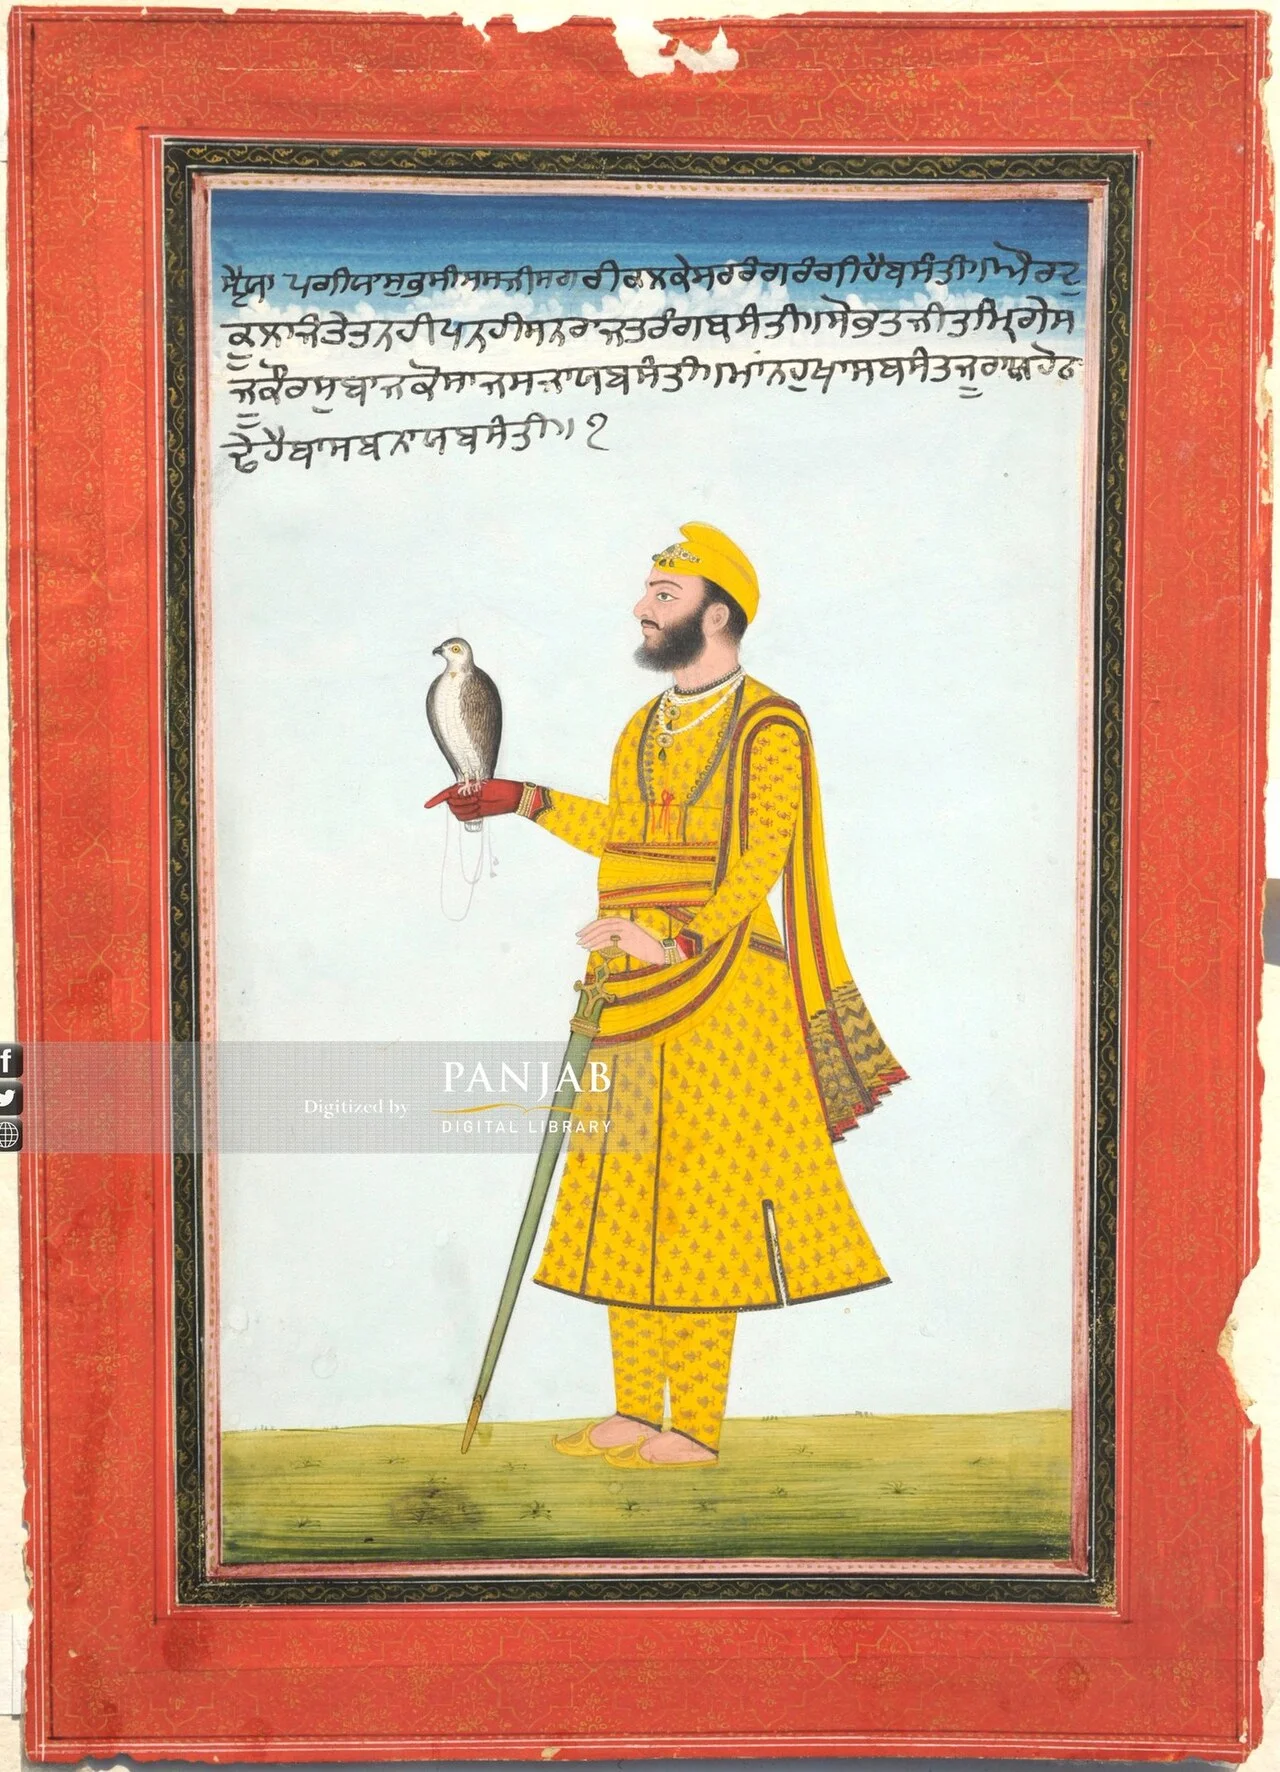 ਸੈਯਾ ਪਗੀਯਾਸੁਭਸੀਸਸਜੀਸਗਰੀਕਲਕੇਸਰਰੰਗਰੰਗੀਹੈਬਸੰਤੀ॥ਔਰਦੁ
ਕੂਲਾਜੰਤੇਤਨਹੀਪਨਹੀਸਨਰਾਜਤਰੰਗਬਸੰਤੀ॥ਸੋਭਤਜੀਤਮ੍ਰਿਗੇਸ
ਜੂਕੌਰਸੁਬਾਜਕੋਸਾਜਸਜਾਯਬਸੰਤੀ॥ਮਾਂਨਹੁਖਾਸਬਸੰਤਜੂਰਾਜ
ਹੈਬਾਸਬਨਾਯਬਸੰਤੀ॥੧
Digitized by PANJAB
DIGITAL LIBRARY